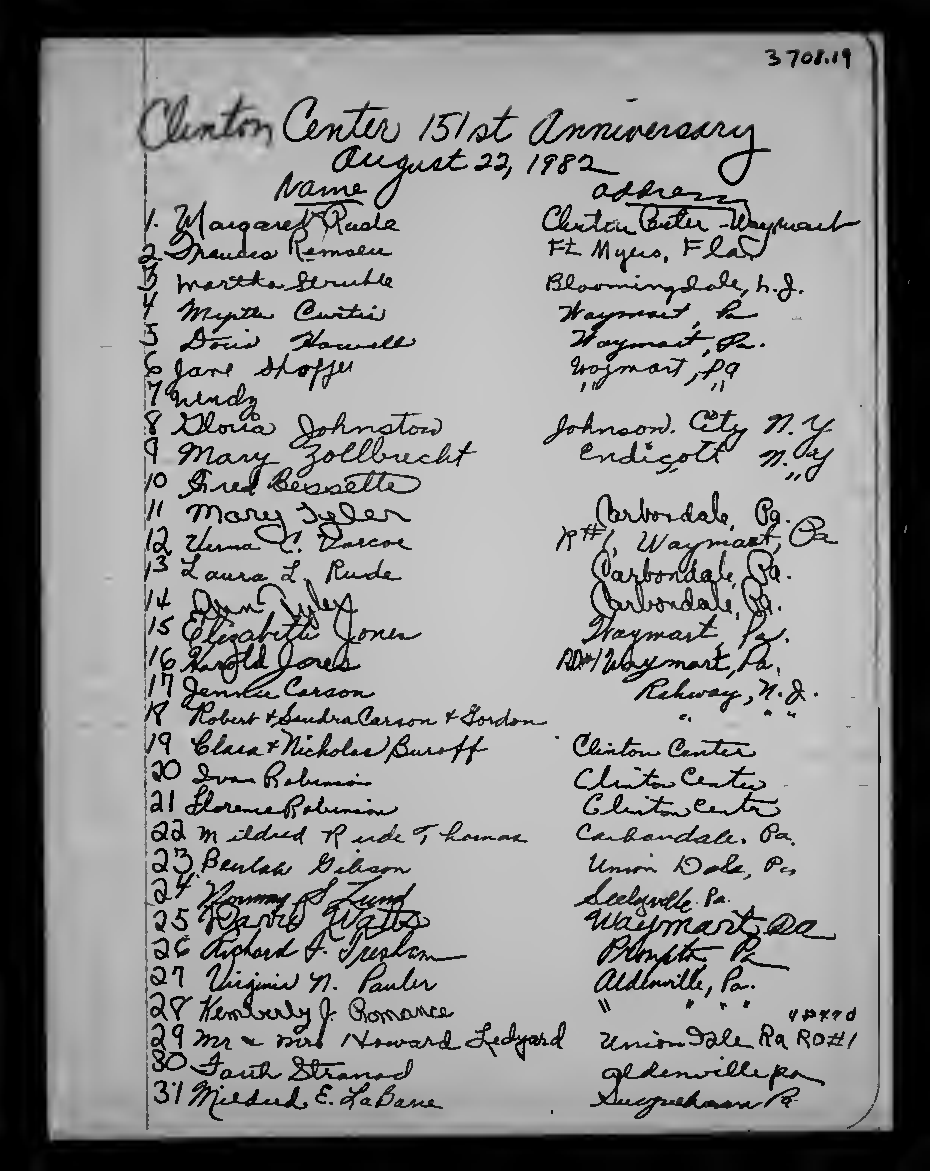 3708.19
Clinton Center 151st Anniversary
August 22, 1982
Name Address
1. Margaret Rude Clinton Center - Waymart
2 Frances Remsen Ft. Myers, Fla
3 Martha Struble Bloomingdale, N.J.
4 Myrtle Curtis Waymart, Pa
5 Doris Howell Waymart, Pa.
6 Jane Shaffer Waymart, Pa
7 Wendy " "
8 Gloria Johnston Johnson. City N.Y
9 Mary Zollbrecht Endicott N.Y
10 Fred Bessette "
11 Mary Tyler Carbondale, Pa.
12 Verna C. Varcoe R#1, Waymart, Pa
13 Laura L. Rude Carbondale, Pa.
14 Ann Tyler Carbondale, Pa.
15 Elizabeth Jones Waymart, Pa.
16 Harold Jones RD#1 Waymart, Pa.
17 Jennie Carson Rahway, N.J.
18 Robert & Sandra Carson & Gordon " " "
19 Clara & Nicholas Buroff Clinton Center
20 Ivan Robinson Clinton Center
21 Florence Robinson Clinton Center
22 Mildred Rude Thomas Carbondale, Pa.
23 Beulah Gibson Union Dale, Pa
24 S Lund Seelyville Pa.
25 Watts Waymart Pa
26 Richard F. Tresham Prompton Pa
27 Virginia N. Pauler Aldenville, Pa.
28 Kimberly J. Romance " " " "
18470
29 Mr & Mrs Howard Ledyard Union Dale Pa RD#1
30 Faith Stranad Aldenville Pa
31 Mildred E. LaBarre Susquehanna Pa